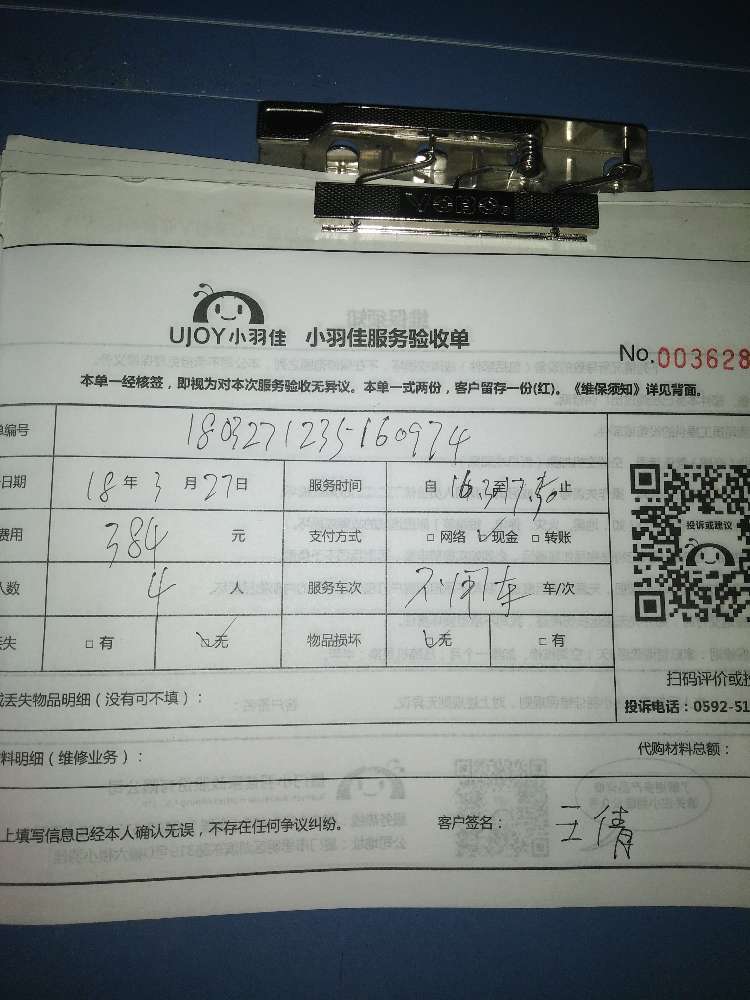 UJOY小羽佳 小羽佳服务验收单
No.003628
本单一经核签，即视为对本次服务验收无异议。本单一式两份，客户留存一份(红)。《维保须知》详见背面。
单编号 1803271235160974
日期 18年3月27日 服务时间 自16.30至17.50止
费用 384 元 支付方式 □网络 ☑现金 □转账
人数 4 人 服务车次 不用车 车/次
丢失 □有 ☑无 物品损坏 ☑无 □有
投诉或建议
扫码评价或投
投诉电话：0592-51
或丢失物品明细（没有可不填）：
料明细（维修业务）： 代购材料总额：
上填写信息已经本人确认无误，不存在任何争议纠纷。 客户签名： 王倩